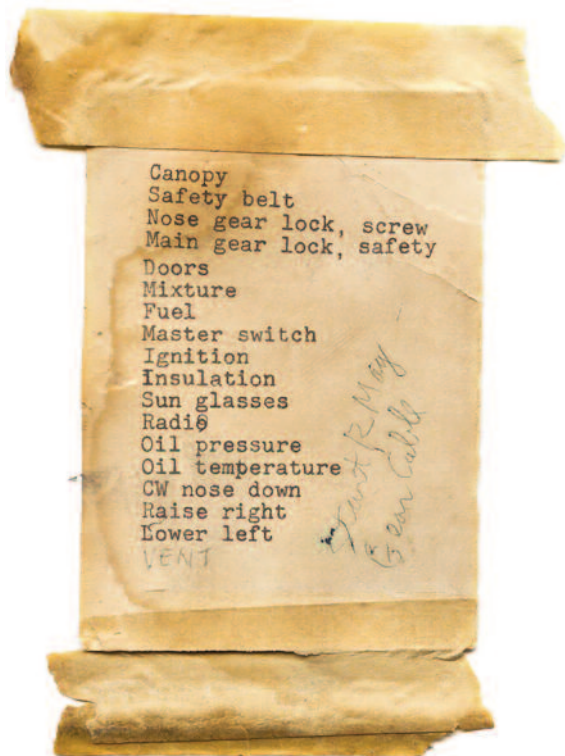 Canopy
Safety belt
Nose gear lock, screw
Main gear lock, safety
Doors
Mixture
Fuel
Master switch
Ignition
Insulation
Sun glasses
Radio
Oil pressure
Oil temperature
CW nose down
Raise right
Lower left
VENT
R Mag
Gear Cable